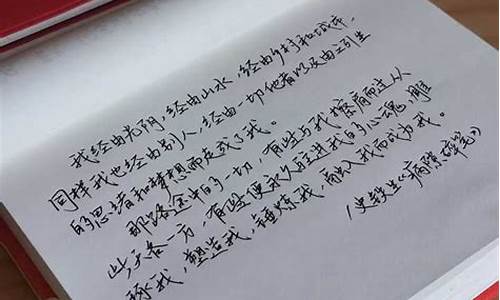 我经由光阴,经由山水,经由乡村和城市,
同样我也经由别人,经由一切他者以及由之引生
的思绪和梦想而走成了我。
那路途中的一切,有些与我擦肩而过从
此天各一方,有些便永久驻进我的心魂,雕
琢我,塑造我,锤炼我,融入我而成为我。
/史铁生《病隙碎笔》